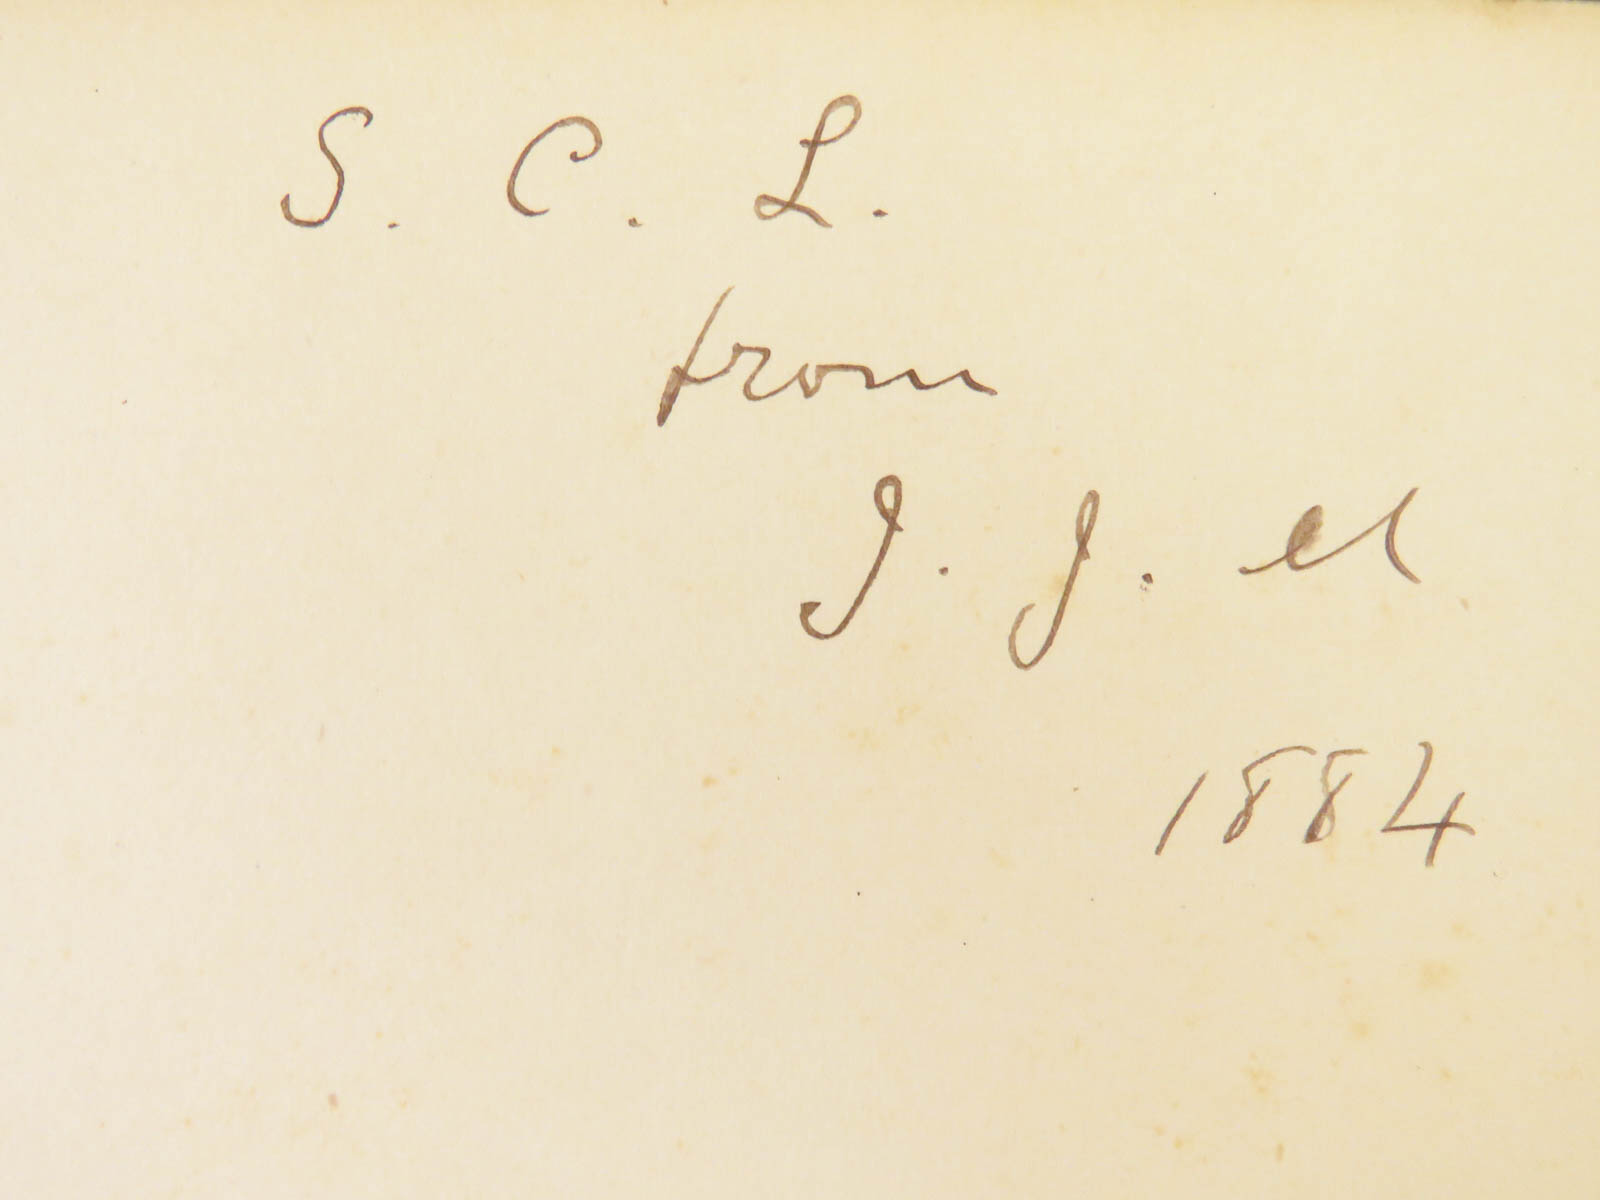 S. C. L.
from
J. J. M
1884